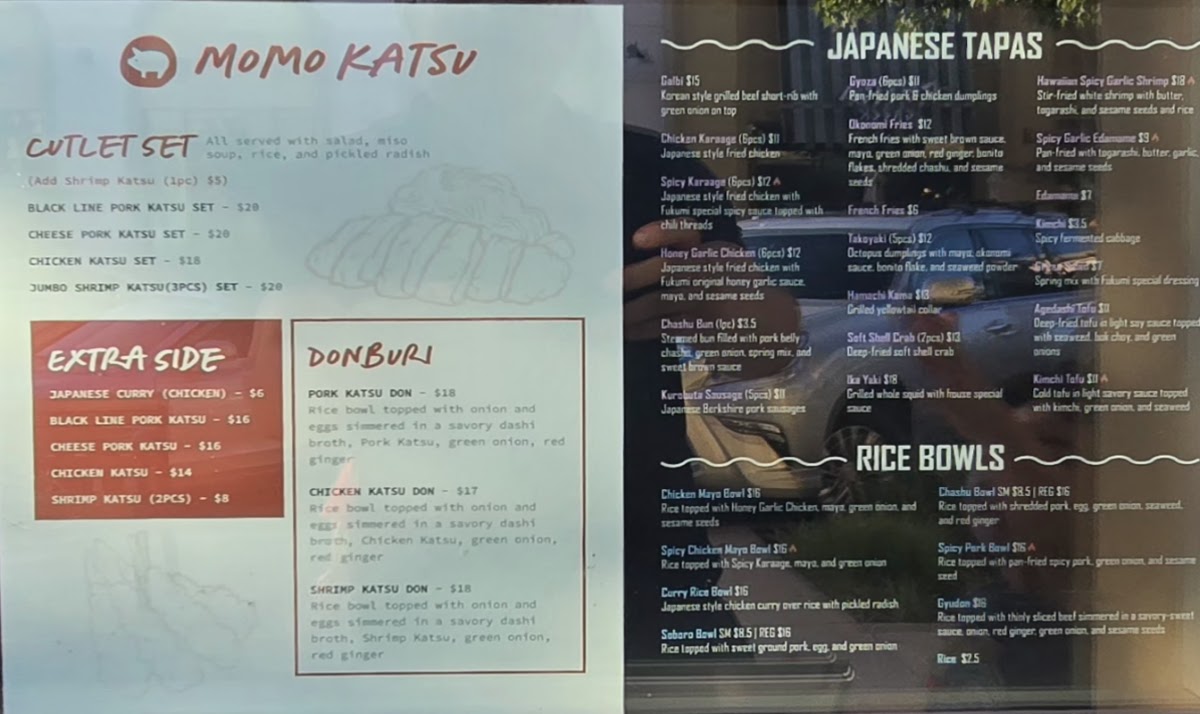 MOMO KATSU
CUTLET SET
All served with salad, miso
soup, rice, and pickled radish
(Add Shrimp Katsu (1pc) $5)
BLACK LINE PORK KATSU SET - $20
CHEESE PORK KATSU SET - $20
CHICKEN KATSU SET - $18
JUMBO SHRIMP KATSU(3PCS) SET - $20
EXTRA SIDE
JAPANESE CURRY (CHICKEN) - $6
BLACK LINE PORK KATSU - $16
CHEESE PORK KATSU - $16
CHICKEN KATSU - $14
SHRIMP KATSU (2PCS) - $8
DONBURI
PORK KATSU DON - $18
Rice bowl topped with onion and
eggs simmered in a savory dashi
broth, Pork Katsu, green onion, red
ginger
CHICKEN KATSU DON - $17
Rice bowl topped with onion and
eggs simmered in a savory dashi
broth, Chicken Katsu, green onion,
red ginger
SHRIMP KATSU DON - $18
Rice bowl topped with onion and
eggs simmered in a savory dashi
broth, Shrimp Katsu, green onion,
red ginger
JAPANESE TAPAS
Galbi $15
Korean style grilled beef short-rib with
green onion on top
Chicken Karaage (6pcs) $11
Japanese style fried chicken
Spicy Karaage (6pcs) $12
Japanese style fried chicken with
Fukumi special spicy sauce topped with
chili threads
Honey Garlic Chicken (6pcs) $12
Japanese style fried chicken with
Fukumi original honey garlic sauce,
mayo, and sesame seeds
Chashu Bun (1pc) $3.5
Steamed bun filled with pork belly
chashu, green onion, spring mix, and
sweet brown sauce
Kurobuta Sausage (5pcs) $11
Japanese Berkshire pork sausages
Gyoza (6pcs) $11
Pan-fried pork & chicken dumplings
Okonomi Fries $12
French fries with sweet brown sauce,
mayo, green onion, red ginger, bonito
flakes, shredded chashu, and sesame
seeds
French Fries $6
Takoyaki (5pcs) $12
Octopus dumplings with mayo, okonomi
sauce, bonito flake, and seaweed powder
Hamachi Kama $13
Grilled yellowtail collar
Soft Shell Crab (2pcs) $13
Deep-fried soft shell crab
Ika Yaki $18
Grilled whole squid with house special
sauce
Hawaiian Spicy Garlic Shrimp $18
Stir-fried white shrimp with butter,
togarashi, and sesame seeds and rice
Spicy Garlic Edamame $9
Pan-fried with togarashi, butter, garlic,
and sesame seeds
Edamame $7
Kimchi $3.5
Spicy fermented cabbage
$7
Spring mix with Fukumi special dressing
Agedashi Tofu $11
Deep-fried tofu in light soy sauce topped
with seaweed, bok choy, and green
onions
Kimchi Tofu $11
Cold tofu in light savory sauce topped
with kimchi, green onion, and seaweed
RICE BOWLS
Chicken Mayo Bowl $16
Rice topped with Honey Garlic Chicken, mayo, green onion, and
sesame seeds
Spicy Chicken Mayo Bowl $16
Rice topped with Spicy Karaage, mayo, and green onion
Curry Rice Bowl $16
Japanese style chicken curry over rice with pickled radish
Soboro Bowl SM $8.5 | REG $16
Rice topped with sweet ground pork, egg, and green onion
Chashu Bowl SM $8.5 | REG $16
Rice topped with shredded pork, egg, green onion, seaweed,
and red ginger
Spicy Pork Bowl $16
Rice topped with pan-fried spicy pork, green onion, and sesame
seed
Gyudon $16
Rice topped with thinly sliced beef simmered in a savory-sweet
sauce, onion, red ginger, green onion, and sesame seeds
Rice $2.5